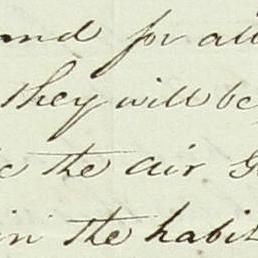 and for all
they will be
the air G
in the habit